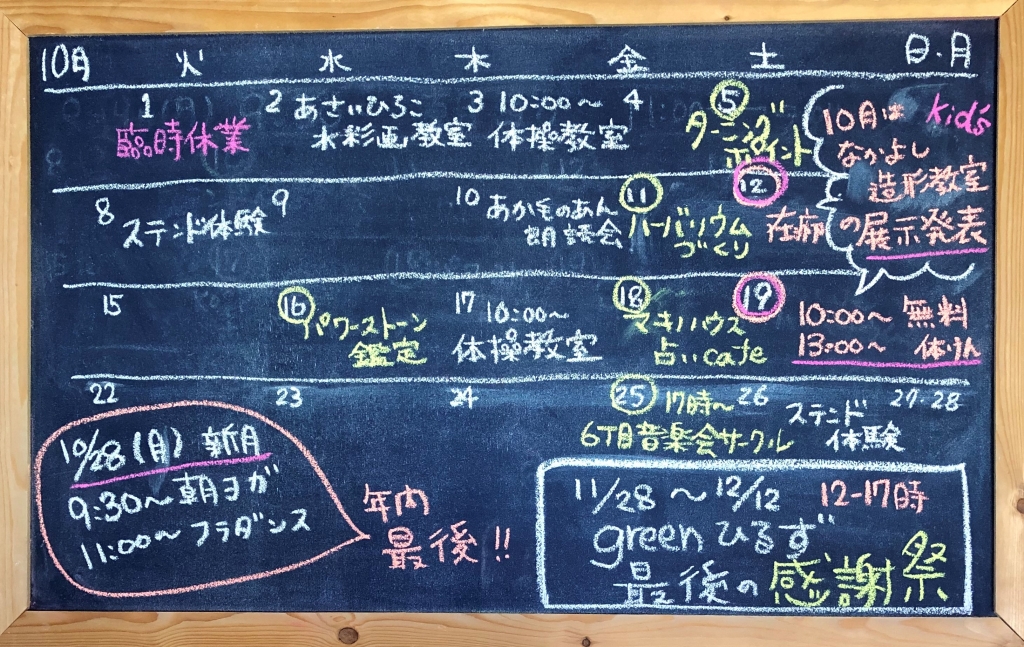 10月 火 水 木 金 土 日・月
1
臨時休業
2 あさいひろこ
水彩画教室
3 10:00〜
体操教室
4
5
ターニング
ポイント
10月は Kid's
なかよし
造形教室
の展示発表
8 ステンド体験
9
10 あかものあん
朗読会
11
ハーバリウム
づくり
12
在廊
15
16
パワーストーン
鑑定
17 10:00〜
体操教室
18
マキハウス
占いcafe
19
10:00〜 無料
13:00〜 体けん
22
23
24
25 17時〜
6丁目音楽会サークル
26 ステンド
体験
27・28
10/28(月) 新月
9:30〜朝ヨガ
11:00〜フラダンス
年内
最後!!
11/28〜12/12 12-17時
greenひるず
最後の感謝祭